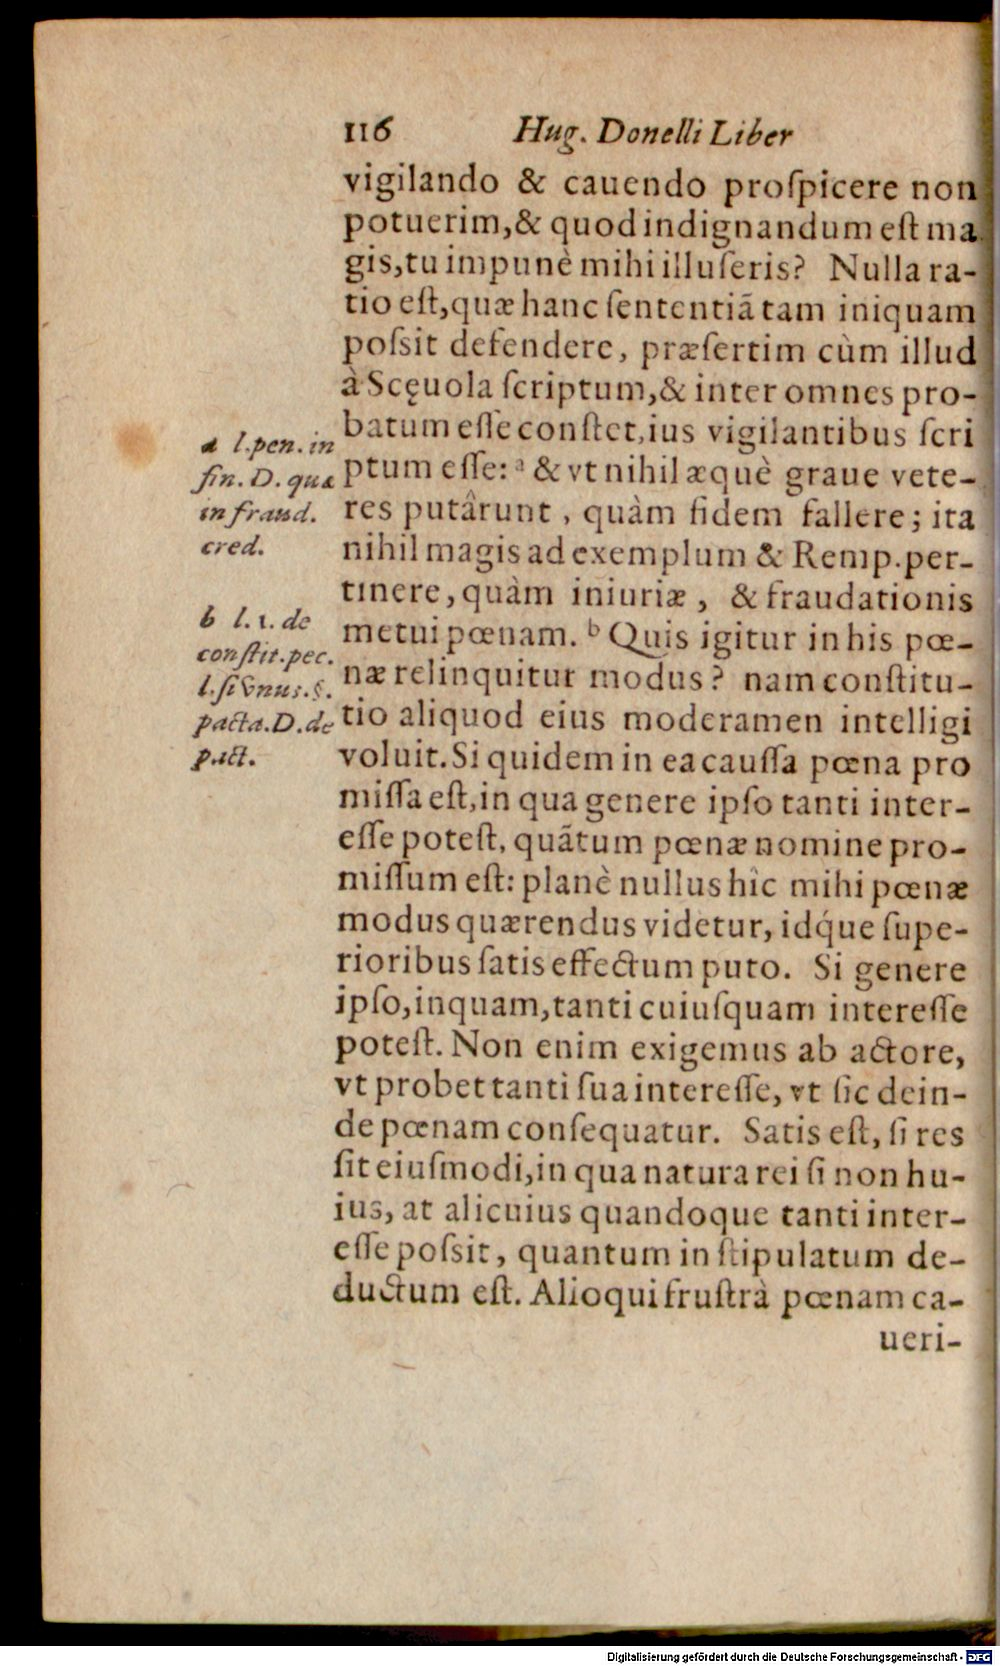 116 Hug. Donelli Liber
vigilando & cauendo proſpicere non
potuerim,& quod indignandum eſt ma
gis,tu impunè mihi illuſeris? Nulla ra-
tio eſt,quæ hanc ſententiã tam iniquam
poſsit defendere, præſertim cùm illud
à Scęuola ſcriptum,& inter omnes pro-
batum eſſe conſtet,ius vigilantibus ſcri
ptum eſſe: ª & vt nihil æquè graue vete-
res putârunt, quàm fidem fallere; ita
nihil magis ad exemplum & Remp.per-
tinere, quàm iniuriæ, & fraudationis
metui pœnam. ᵇ Quis igitur in his pœ-
næ relinquitur modus? nam conſtitu-
tio aliquod eius moderamen intelligi
voluit. Si quidem in ea cauſſa pœna pro
miſſa eſt,in qua genere ipſo tanti inter-
eſſe poteſt, quãtum pœnæ nomine pro-
miſſum eſt: planè nullus hîc mihi pœnæ
modus quærendus videtur, idq́ue ſupe-
rioribus ſatis effectum puto. Si genere
ipſo,inquam,tanti cuiuſquam intereſſe
poteſt. Non enim exigemus ab actore,
vt probet tanti ſua intereſſe, vt ſic dein-
de pœnam conſequatur. Satis eſt, ſi res
ſit eiuſmodi,in qua natura rei ſi non hu-
ius, at alicuius quandoque tanti inter-
eſſe poſsit, quantum in ſtipulatum de-
ductum eſt. Alioqui fruſtrà pœnam ca-
ueri-
a l.pen. in
fin. D. quæ
in fraud.
cred.
b l. 1. de
conſtit.pec.
l.ſi vnus.§.
pacta.D.de
pact.
Digitalisierung gefördert durch die Deutsche Forschungsgemeinschaft - DFG